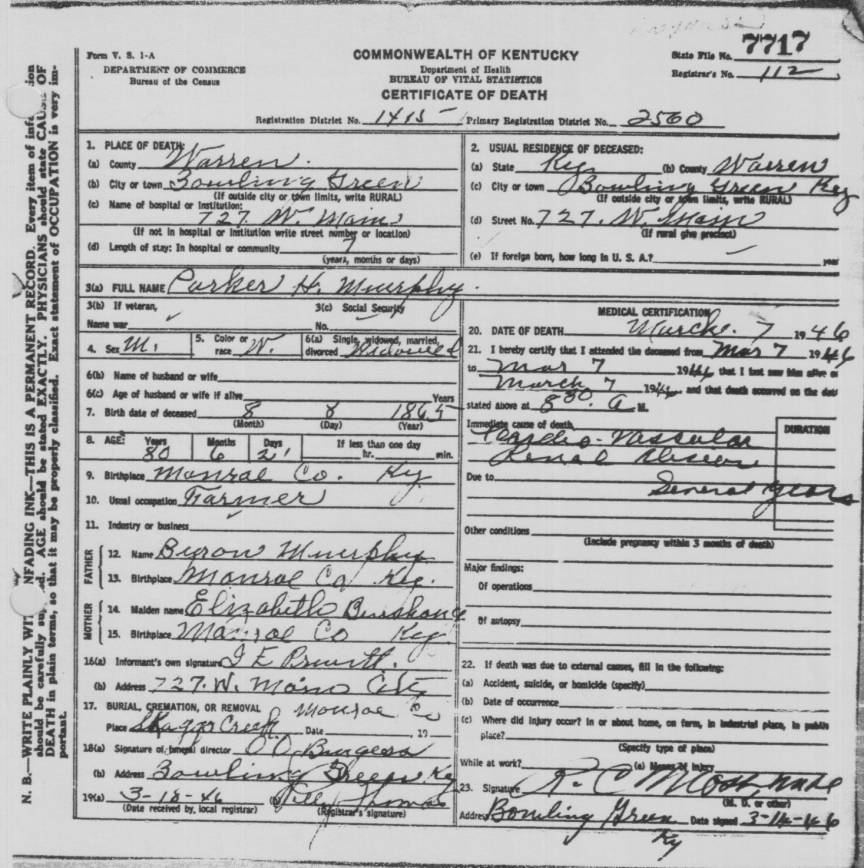 7717
Form V. S. 1-A
DEPARTMENT OF COMMERCE
Bureau of the Census
COMMONWEALTH OF KENTUCKY
Department of Health
BUREAU OF VITAL STATISTICS
CERTIFICATE OF DEATH
State File No.
Registrar's No. 112
Registration District No. 1415 Primary Registration District No. 2560
N. B.—WRITE PLAINLY WITH UNFADING INK—THIS IS A PERMANENT RECORD. Every item of information
should be carefully supplied. AGE should be stated EXACTLY. PHYSICIANS should state CAUSE OF
DEATH in plain terms, so that it may be properly classified. Exact statement of OCCUPATION is very im-
portant.
1. PLACE OF DEATH:
(a) County Warren.
(b) City or town Bowling Green
(If outside city or town limits, write RURAL)
(c) Name of hospital or institution:
727. W Main
(If not in hospital or institution write street number or location)
(d) Length of stay: In hospital or community 7
(years, months or days)
2. USUAL RESIDENCE OF DECEASED:
(a) State Ky (b) County Warren
(c) City or town Bowling Green Ky
(If outside city or town limits, write RURAL)
(d) Street No. 727. W. Main
(If rural give precinct)
(e) If foreign born, how long in U. S. A.? year
3(a) FULL NAME Parker H. Murphy.
3(b) If veteran,
Name war
3(c) Social Security
No.
4. Sex M. 5. Color or race W. 6(a) Single, widowed, married, divorced Widowed
6(b) Name of husband or wife
6(c) Age of husband or wife if alive Years
7. Birth date of deceased 8 8 1865
(Month) (Day) (Year)
8. AGE: Years Months Days If less than one day
80 6 21 hr. min.
9. Birthplace Monroe Co. Ky.
10. Usual occupation Farmer
11. Industry or business
FATHER
12. Name Byron Murphy
13. Birthplace Monroe Co Ky.
MOTHER
14. Maiden name Elizabeth
15. Birthplace Monroe Co Ky
16(a) Informant's own signature J E Pruitt.
(b) Address 727. W. Main City
17. BURIAL, CREMATION, OR REMOVAL Monroe Co
Place Skaggs Creek Date 19
18(a) Signature of funeral director O O. Burgess
(b) Address Bowling Green Ky
19(a) 3-18-46 (b) Thomas
(Date received by local registrar) (Registrar's signature)
MEDICAL CERTIFICATION
20. DATE OF DEATH March. 7 1946
21. I hereby certify that I attended the deceased from Mar 7 1946
to Mar 7 1946, that I last saw him alive on
March 7 1946, and that death occurred on the date
stated above at 8 30 A M.
Immediate cause of death DURATION
Cardio-Vascular
Renal Disease
Due to
Several years
Other conditions
(Include pregnancy within 3 months of death)
Major findings:
Of operations
Of autopsy
22. If death was due to external causes, fill in the following:
(a) Accident, suicide, or homicide (specify)
(b) Date of occurrence
(c) Where did injury occur? In or about home, on farm, in industrial place, in public
place?
(Specify type of place)
While at work? (e) Means of injury
23. Signature
(M. D. or other)
Address Bowling Green Date signed 3-14-46
Ky